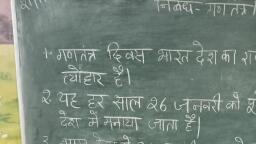 निबंध - गणतंत्र
1. गणतंत्र दिवस भारत देश का
त्यौहार है।
2. यह हर साल 26 जनवरी को
देश में मनाया जाता है।
3.